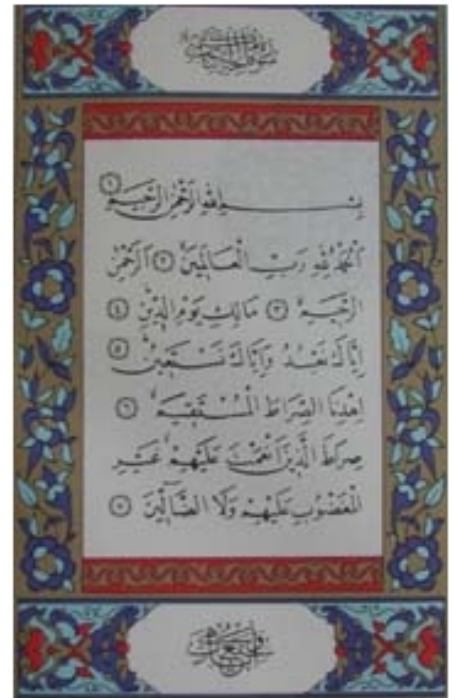 بِسْمِ اللهِ الرَّحْمٰنِ الرَّحِيمِ ١
اَلْحَمْدُ لِلهِ رَبِّ الْعَالَمِينَ ٢ اَلرَّحْمٰنِ
الرَّحِيمِ ٣ مَالِكِ يَوْمِ الدِّينِ ٤
اِيَّاكَ نَعْبُدُ وَاِيَّاكَ نَسْتَعِينُ ٥
اِهْدِنَا الصِّرَاطَ الْمُسْتَقِيمَ ٦
صِرَاطَ الَّذِينَ اَنْعَمْتَ عَلَيْهِمْ غَيْرِ
الْمَغْضُوبِ عَلَيْهِمْ وَلَا الضَّالِّينَ ٧